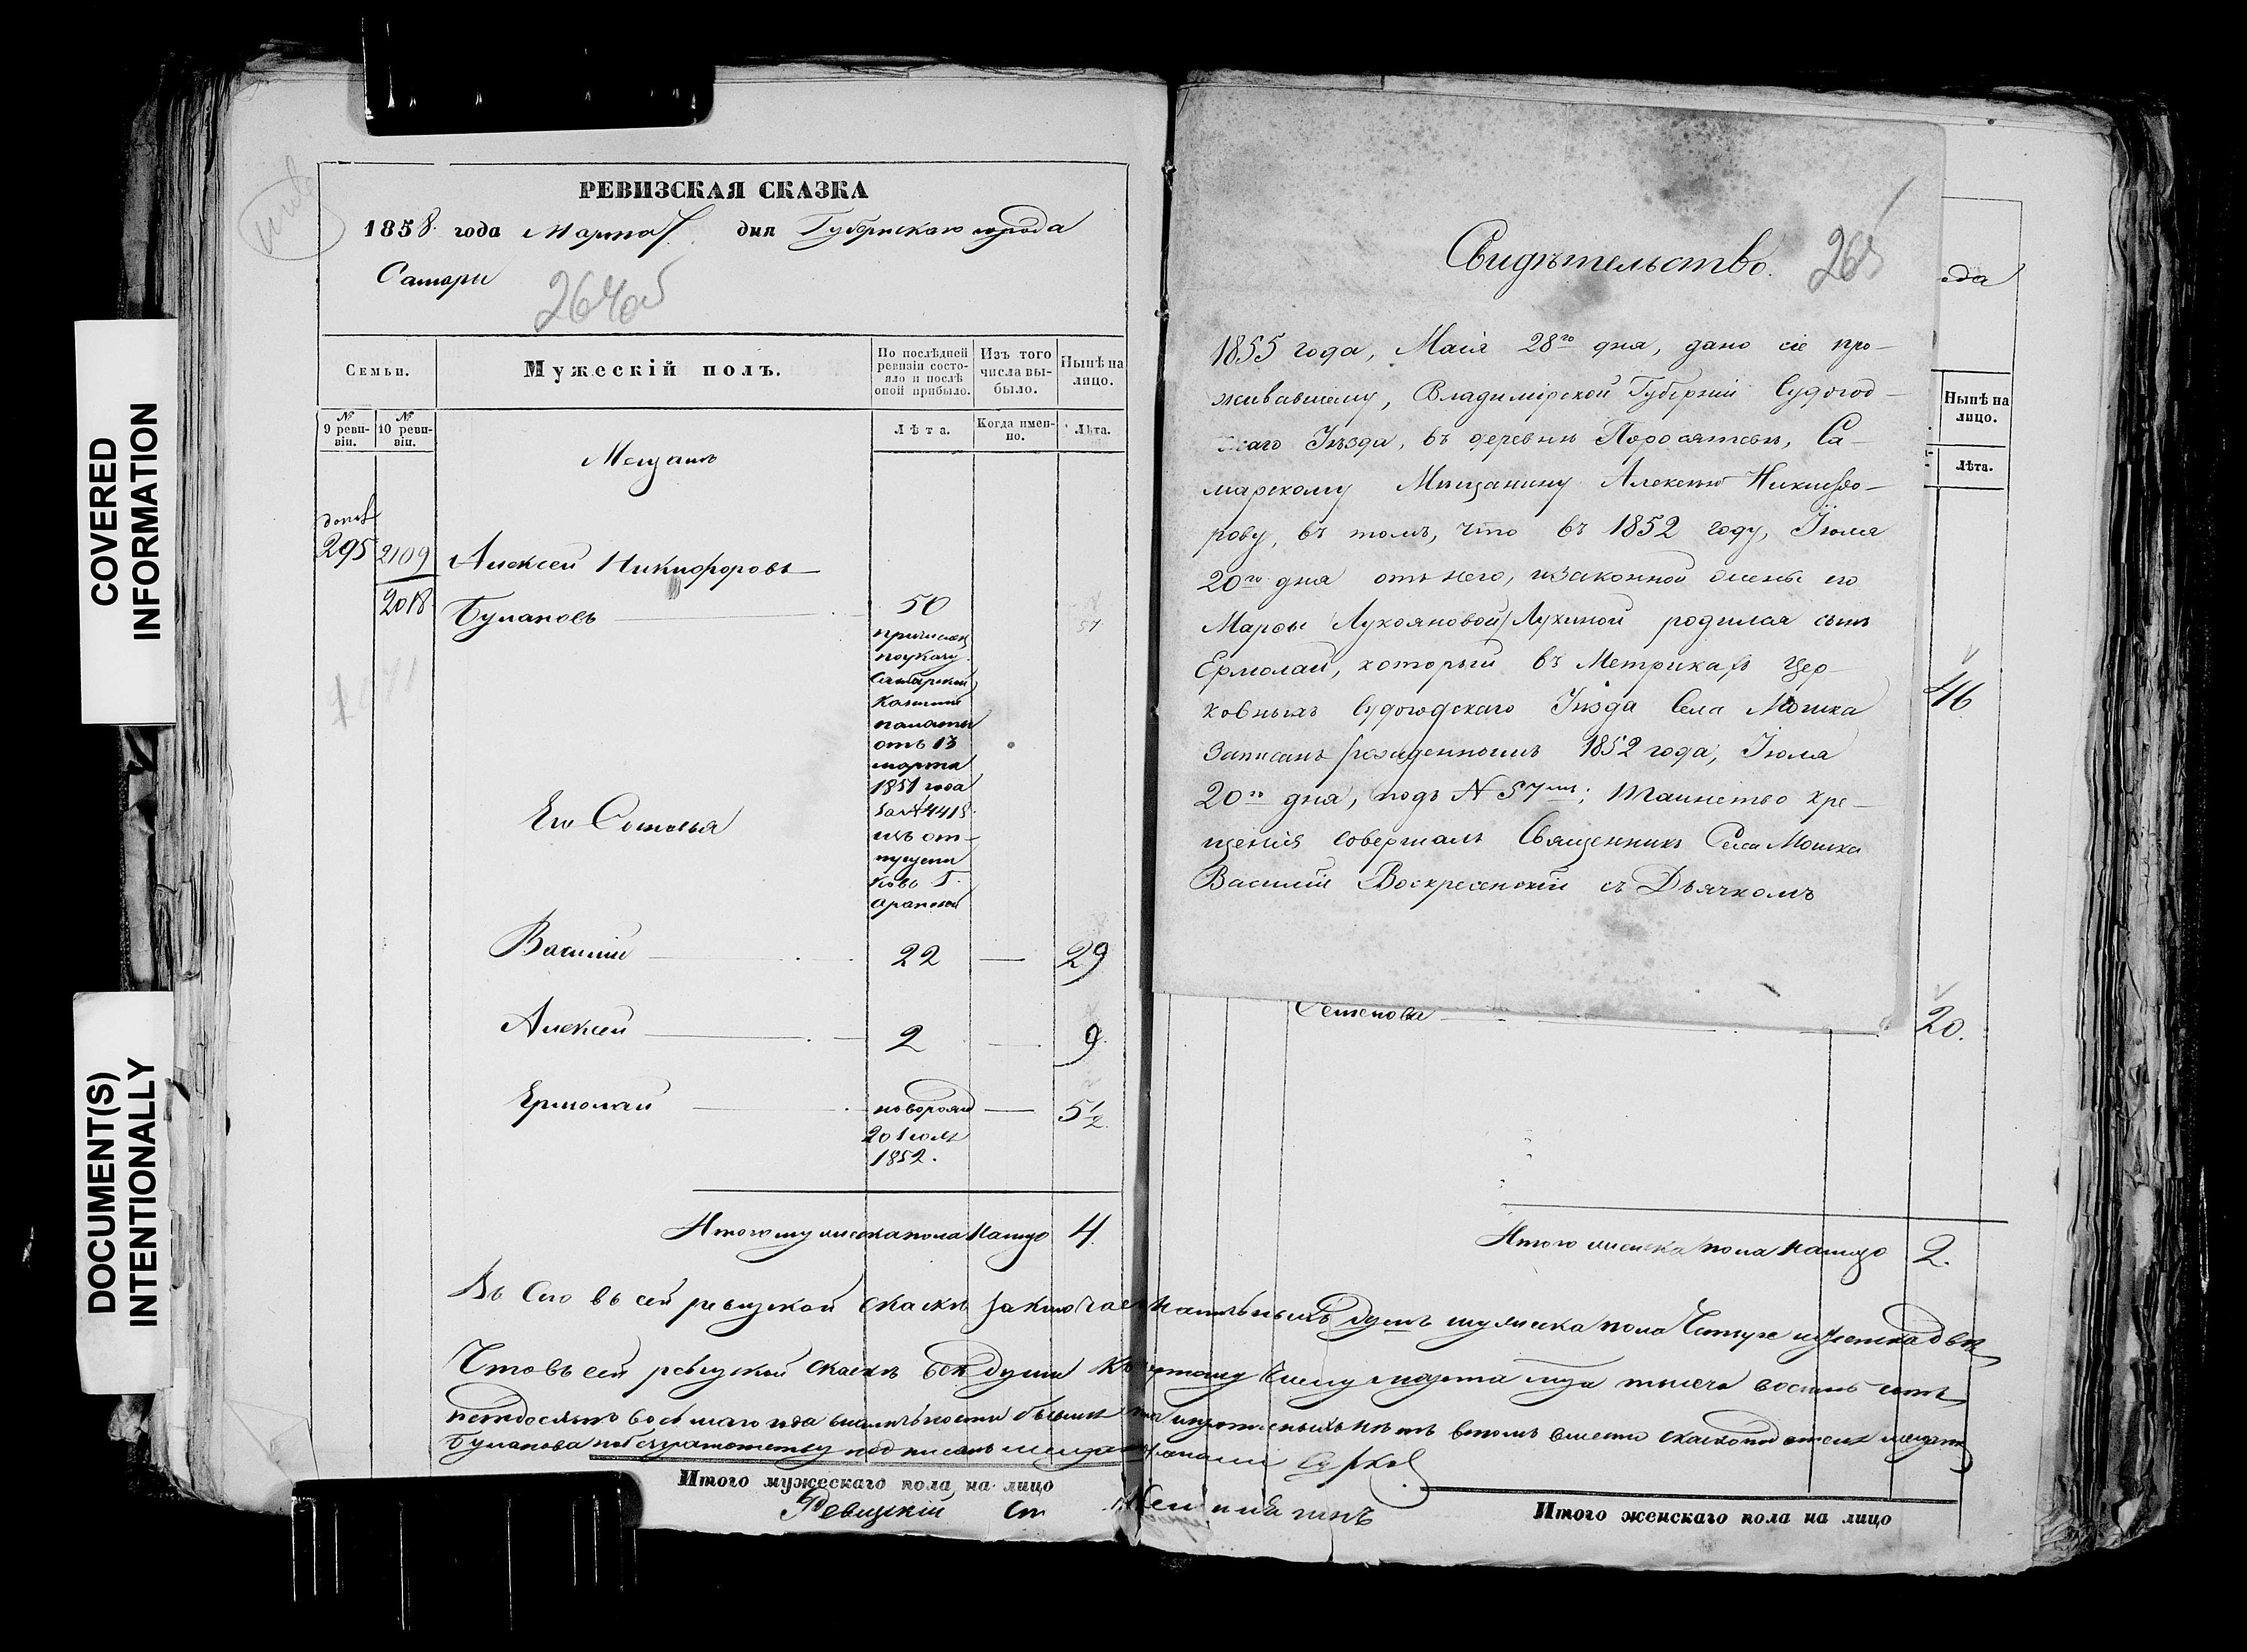 COVERED
INFORMATION
DOCUMENT(S)
INTENTIONALLY
РЕВИЗСКАЯ СКАЗКА
1858 года Марта дня Губернскаго города
Самары
264об
Семьи.
Мужескій полъ.
По послѣдней ревизіи состояло и послѣ оной прибыло.
Изъ того числа выбыло.
Нынѣ на лицо.
№ 9 ревизіи.
№ 10 ревизіи.
Лѣта.
Когда именно.
Лѣта.
Мещанъ
295 2109 Алексей Никифоровъ
2018 Булановъ 50 57
причислен
по указу
Самарской
Казенной
палаты
отъ 13
марта
1851 года
за № 4415
изъ от-
пущени
ковъ Г.
Его Сыновья
Василий 22 — 29
Алексей 2 — 9
Ермолай новорожд — 5½
20 Июля
1852.
Итого мужеска пола налицо 4.
Свидѣтельство.
265
1855 года, Маія 28го дня, дано сіе про-
живавшему, Владимірской Губерніи Судогод-
скаго Уѣзда, въ деревнѣ Поросятевѣ, Са-
марскому Мѣщанину Алексѣю Никифо-
рову, въ томъ, что въ 1852 году, Іюля
20го дня отъ него, и законной жены его
Марѳы Лукояновой родился сынъ
Ермолай, который въ Метрикахъ цер-
ковныхъ Судогодскаго Уѣзда Села Мошка
записанъ рожденнымъ 1852 года, Іюля
20го дня, подъ № 57мъ; Таинство кре-
щенія совершалъ Священникъ Села Мошка
Василій Воскресенскій съ Дьячкомъ
Нынѣ на лицо.
Лѣта.
46
Семенова 20.
Итого женска пола налицо 2.
Всего въ сей ревизской сказкѣ заключается наличныхъ душъ мужеска пола Четыре и женска двѣ
Что въ сей ревизской сказкѣ всѣ души къ марта тысяча восемь сотъ
пятдесятъ восьмаго года въ томъ вместо
Буланова по безграмотству подписалъ
Итого мужескаго пола на лицо
Итого женскаго пола на лицо